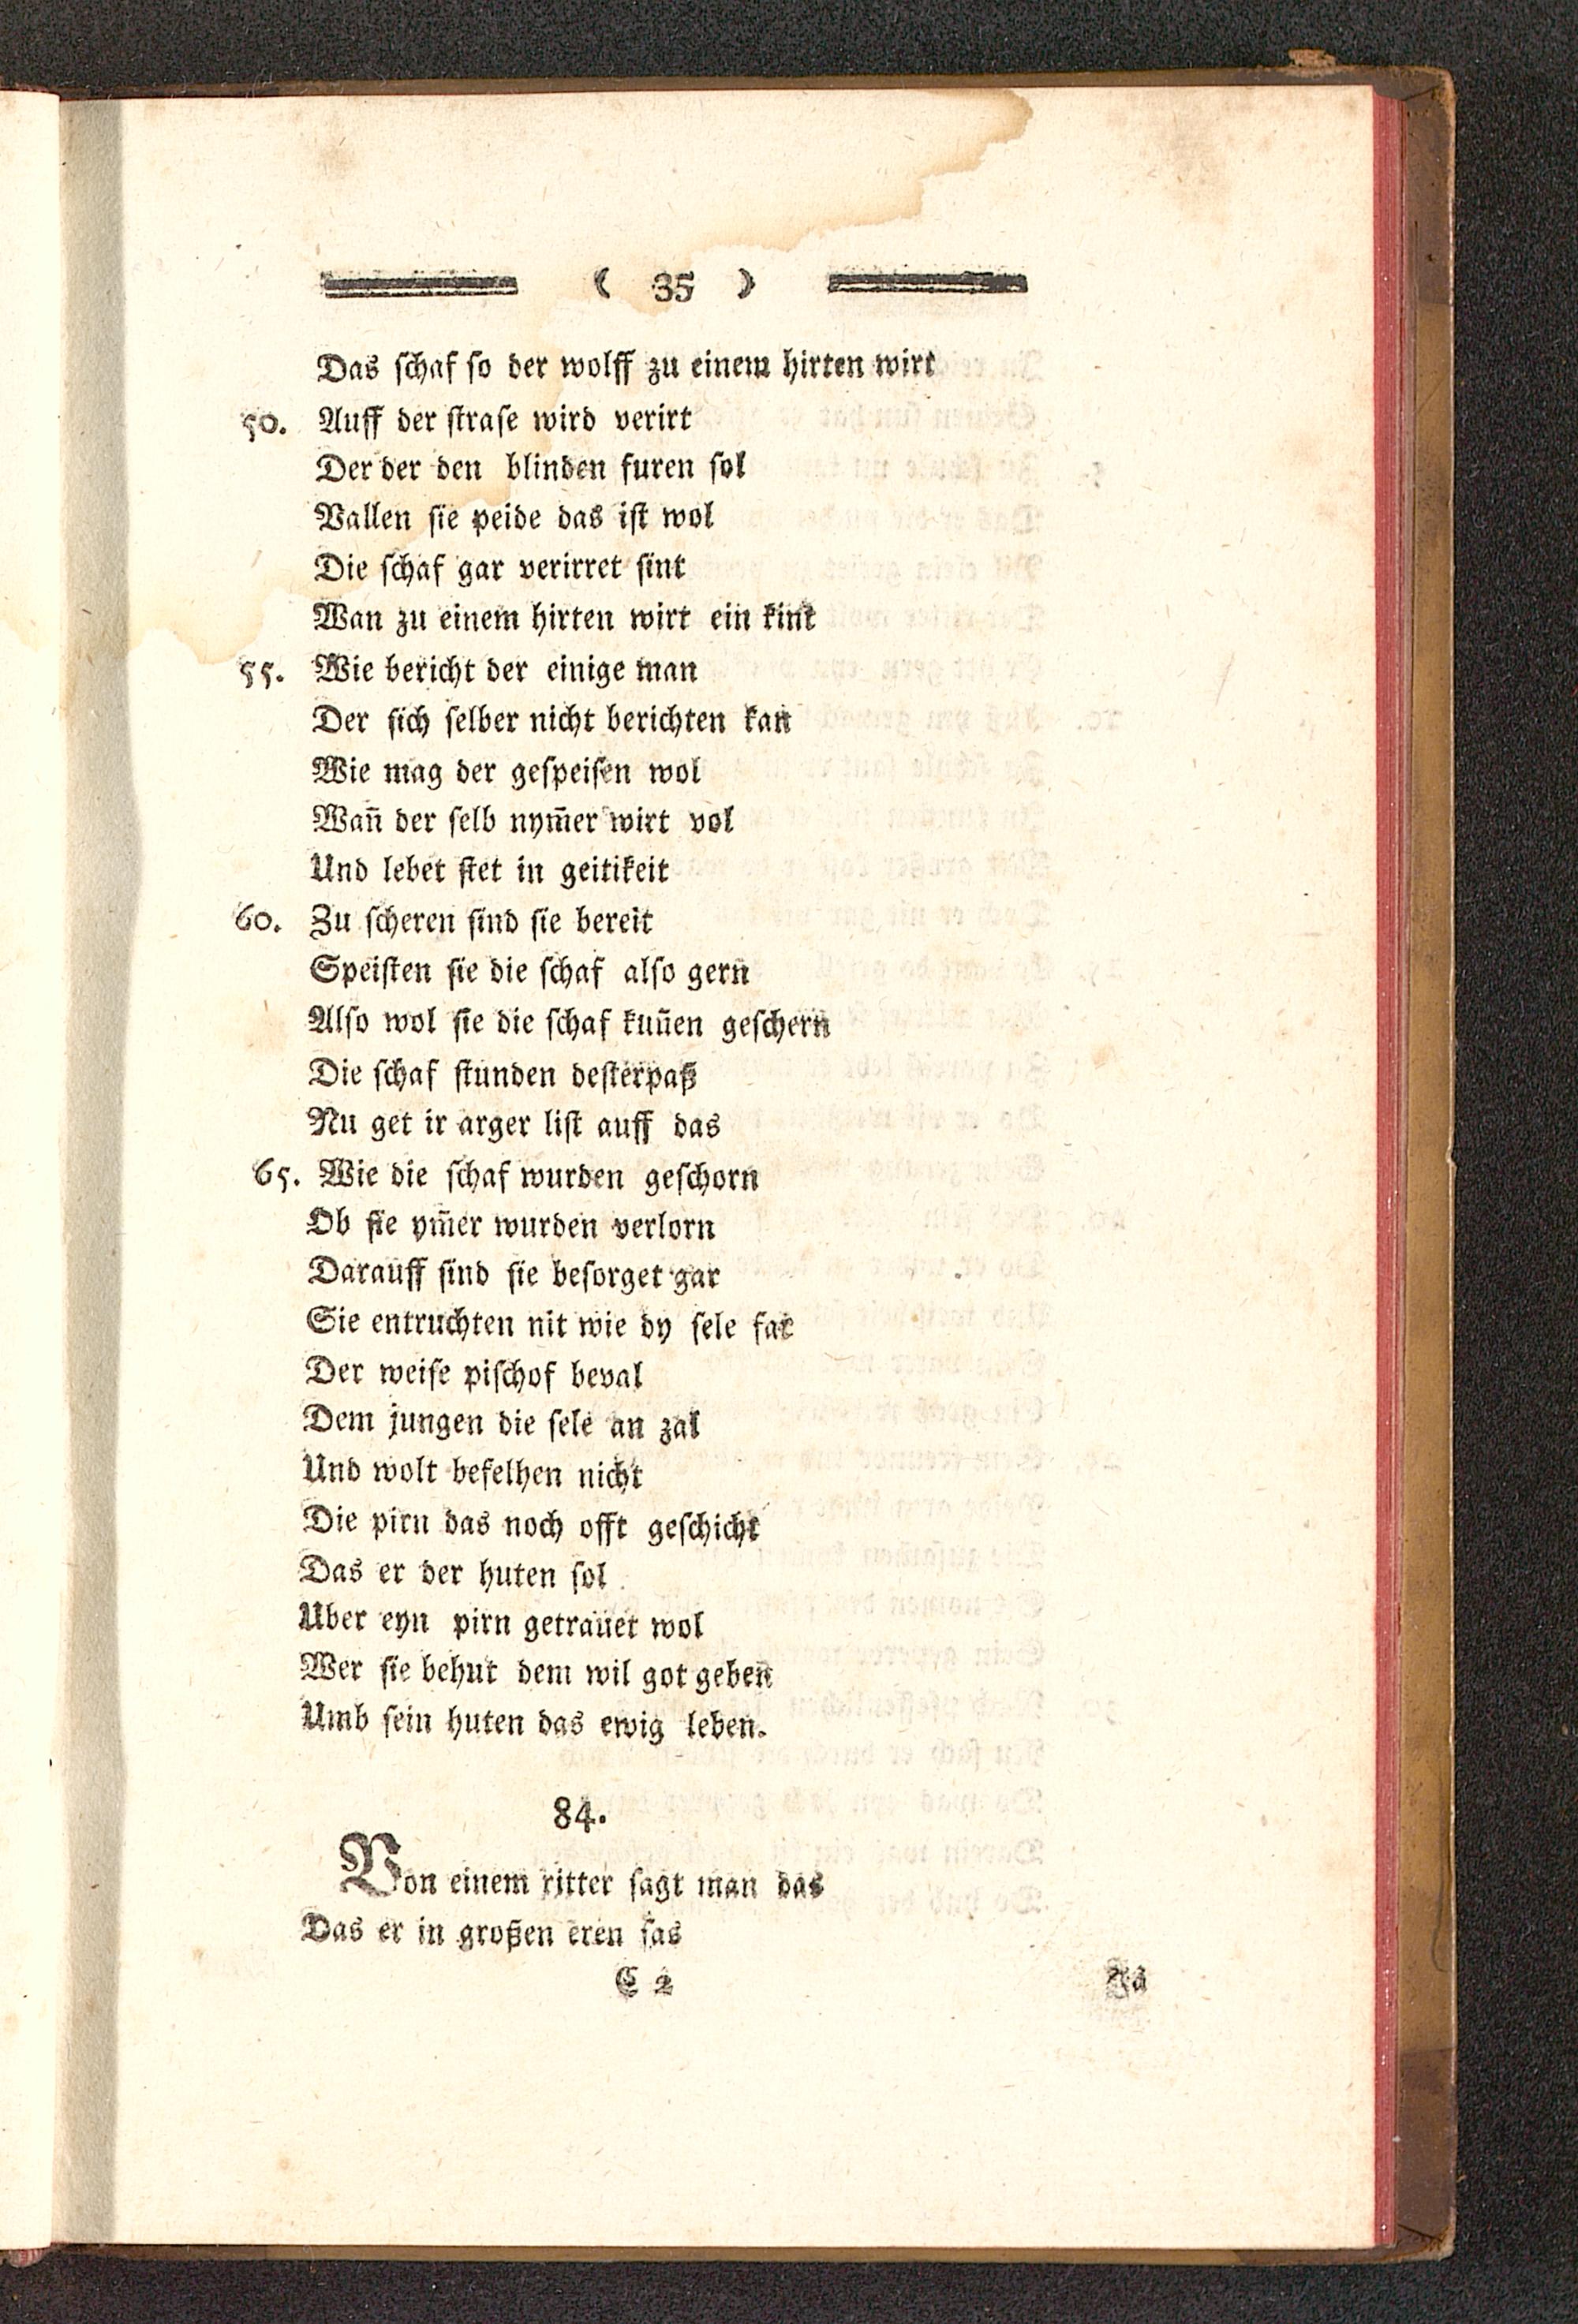 ( 35 )
Das schaf so der wolff zu einem hirten wirt
50. Auff der strase wird verirt
Der der den blinden furen sol
Vallen sie peide das ist wol
Die schaf gar verirret sint
Wan zu einem hirten wirt ein kint
55. Wie bericht der einige man
Der sich selber nicht berichten kan
Wie mag der gespeisen wol
Wan̄ der selb nym̄er wirt vol
Und lebet stet in geitikeit
60. Zu scheren sind sie bereit
Speisten sie die schaf also gern
Also wol sie die schaf kun̄en geschern
Die schaf stunden desterpaß
Nu get ir arger list auff das
65. Wie die schaf wurden geschorn
Ob sie ym̄er wurden verlorn
Darauff sind sie besorget gar
Sie entruchten nit wie dy sele far
Der weise pischof beval
Dem jungen die sele an zal
Und wolt befelhen nicht
Die pirn das noch offt geschicht
Das er der huten sol
Uber eyn pirn getrauet wol
Wer sie behut dem wil got geben
Umb sein huten das ewig leben.
84.
Von einem ritter sagt man das
Das er in großen eren sas
C 2